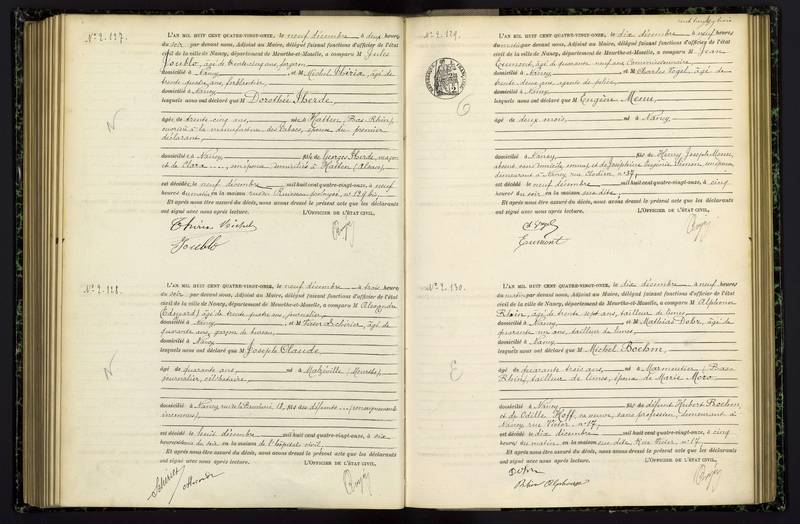 N° 2.127.
L'AN MIL HUIT CENT QUATRE-VINGT-ONZE, le neuf décembre à deux heures
du soir par devant nous, Adjoint au Maire, délégué faisant fonctions d'officier de l'état
civil de la ville de Nancy, département de Meurthe-et-Moselle, a comparu M Jules
Joublo, âgé de
domicilié à Nancy et M Michel Thiria, âgé de
trente quatre ans,
domicilié à Nancy
lesquels nous ont déclaré que M Dorothée Iberdé
âgée de trente cinq ans, née à Hatten, Bas Rhin,
ouvrière à la manufacture des tabacs, épouse du premier
déclarant,
domicilié à Nancy, fille de Georges Iberdé, maçon
et de Clara domiciliés à Hatten (Alsace),
est décédée, le neuf décembre mil huit cent quatre-vingt-onze, à neuf
heures du matin en la maison
Et après nous être assuré du décès, nous avons dressé le présent acte que les déclarants
ont signé avec nous après lecture. L'OFFICIER DE L'ÉTAT CIVIL,
Thiria Michel
Joublo
N° 2.128.
L'AN MIL HUIT CENT QUATRE-VINGT-ONZE, le neuf décembre à trois heures
du soir par devant nous, Adjoint au Maire, délégué faisant fonctions d'officier de l'état
civil de la ville de Nancy, département de Meurthe-et-Moselle, a comparu M Alexandre
(Edouard) âgé de trente quatre ans, journalier,
domicilié à Nancy et M Victor Scherier, âgé de
quarante ans, garçon de bureau,
domicilié à Nancy
lesquels nous ont déclaré que M Joseph Claude
âgé de quarante ans, né à Malzéville (Meurthe),
journalier, célibataire
domicilié à Nancy, rue de la 12, fils des défunts (renseignements
inconnus)
est décédé le huit décembre mil huit cent quatre-vingt-onze, à six
heures du soir en la maison de l'hôpital civil,
Et après nous être assuré du décès, nous avons dressé le présent acte que les déclarants
ont signé avec nous après lecture. L'OFFICIER DE L'ÉTAT CIVIL,
N° 2.129.
L'AN MIL HUIT CENT QUATRE-VINGT-ONZE, le dix décembre à neuf heures
du matin par devant nous, Adjoint au Maire, délégué faisant fonctions d'officier de l'état
civil de la ville de Nancy, département de Meurthe-et-Moselle, a comparu M Jean
Cumont, âgé de soixante neuf ans, Commissionnaire,
domicilié à Nancy, et M Charles Vogel, âgé de
trente deux ans, agent de police
domicilié à Nancy
lesquels nous ont déclaré que M Eugène Menu,
âgé de deux mois, né à Nancy,
domicilié à Nancy, fils de Henry Joseph Menu,
absent sans domicile connu, et de Joséphine Eugénie Simon,
demeurant à Nancy rue Clodion, n° 37,
est décédé le neuf décembre mil huit cent quatre-vingt-onze, à cinq
heures du soir en la maison sus dite,
Et après nous être assuré du décès, nous avons dressé le présent acte que les déclarants
ont signé avec nous après lecture. L'OFFICIER DE L'ÉTAT CIVIL,
Ch Vogel
Cumont
N° 2.130.
L'AN MIL HUIT CENT QUATRE-VINGT-ONZE, le dix décembre à neuf heures
du matin par devant nous, Adjoint au Maire, délégué faisant fonctions d'officier de l'état
civil de la ville de Nancy, département de Meurthe-et-Moselle, a comparu M Alphonse
âgé de trente sept ans, tailleur de limes,
domicilié à Nancy et M Mathias Dohr, âgé de
quarante un ans, tailleur de limes,
domicilié à Nancy
lesquels nous ont déclaré que M Michel Boehm,
âgé de quarante trois ans, né à Marmoutier (Bas
Rhin), tailleur de limes, époux de Marie Moro
domicilié à Nancy fils du défunt Hubert Boehm
et de Odille Hoff, sa veuve, sans profession, demeurant à
Nancy rue Victor n° 17,
est décédé le dix décembre mil huit cent quatre-vingt-onze, à cinq
heures du matin en la maison sus dite, rue Victor, n° 17,
Et après nous être assuré du décès, nous avons dressé le présent acte que les déclarants
ont signé avec nous après lecture. L'OFFICIER DE L'ÉTAT CIVIL,
Dohr
Alphonse